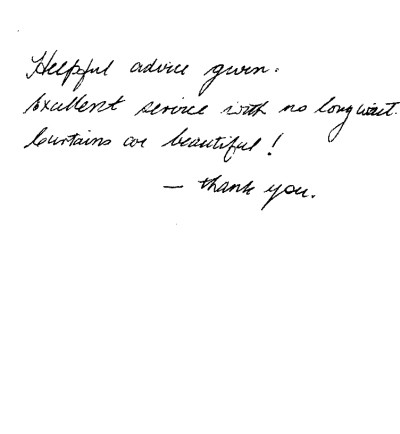 Helpful advice given.
Excellent service with no long wait.
Curtains are beautiful!
— thank you.